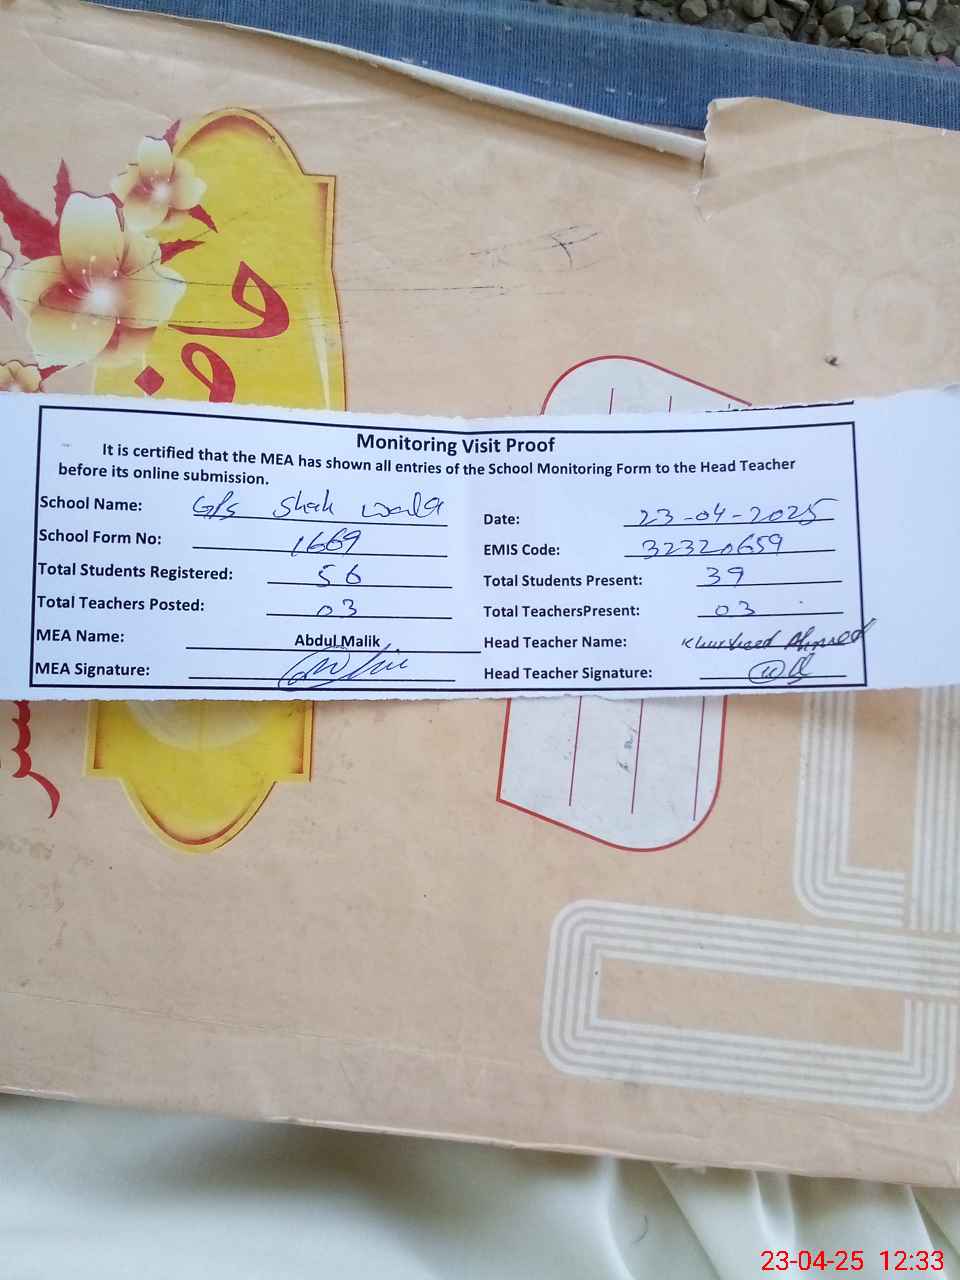 Monitoring Visit Proof
It is certified that the MEA has shown all entries of the School Monitoring Form to the Head Teacher
before its online submission.
School Name: G/s Shah wala
Date: 23-04-2025
School Form No: 1669
EMIS Code: 32320659
Total Students Registered: 56
Total Students Present: 39
Total Teachers Posted: 03
Total TeachersPresent: 03
MEA Name: Abdul Malik
Head Teacher Name: Khursheed Ahmed
MEA Signature:
Head Teacher Signature:
23-04-25 12:33